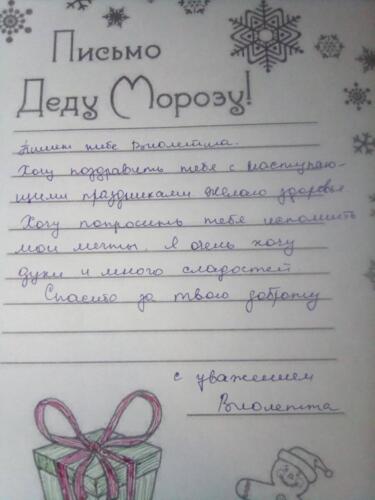 Письмо
Деду Морозу!
Пишет тебе Виолетта.
Хочу поздравить тебя с наступаю-
щими праздниками желаю здоровья
Хочу попросить тебя исполнить
мои мечты. Я очень хочу
духи и много сладостей.
Спасибо за твою доброту
с уважением
Виолетта